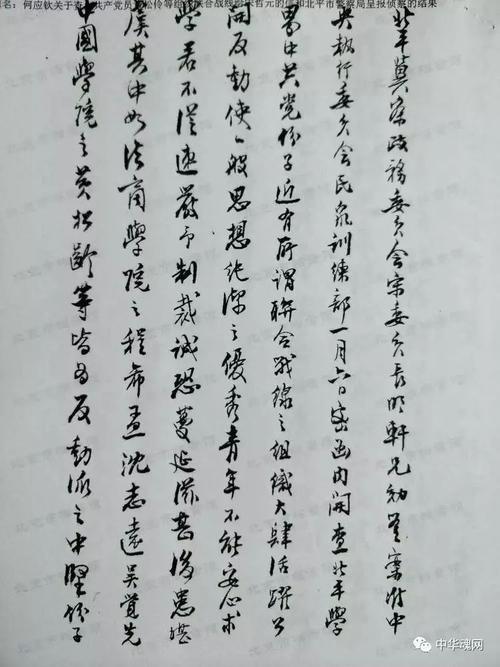 名：何应钦关于查 共产党员 松伶等组织联合战线 宋哲元的信和北平市警察局呈报侦察的结果
北平冀察政務委員會宋委員長明軒兄勛鑒案准中
央執行委員會民眾訓練部一月六日密函内開查北平學
界中共党份子近有所謂聯合戰線之組織大肆活躍公
開反動使一般思想純潔之優秀青年不能安心求
學若不從速嚴予制裁誠恐蔓延滋甚後患堪
虞其中如法商學院之程希孟沈志遠吴覺先
中國學院之黄松齡等皆為反動派之中堅份子
中华魂网